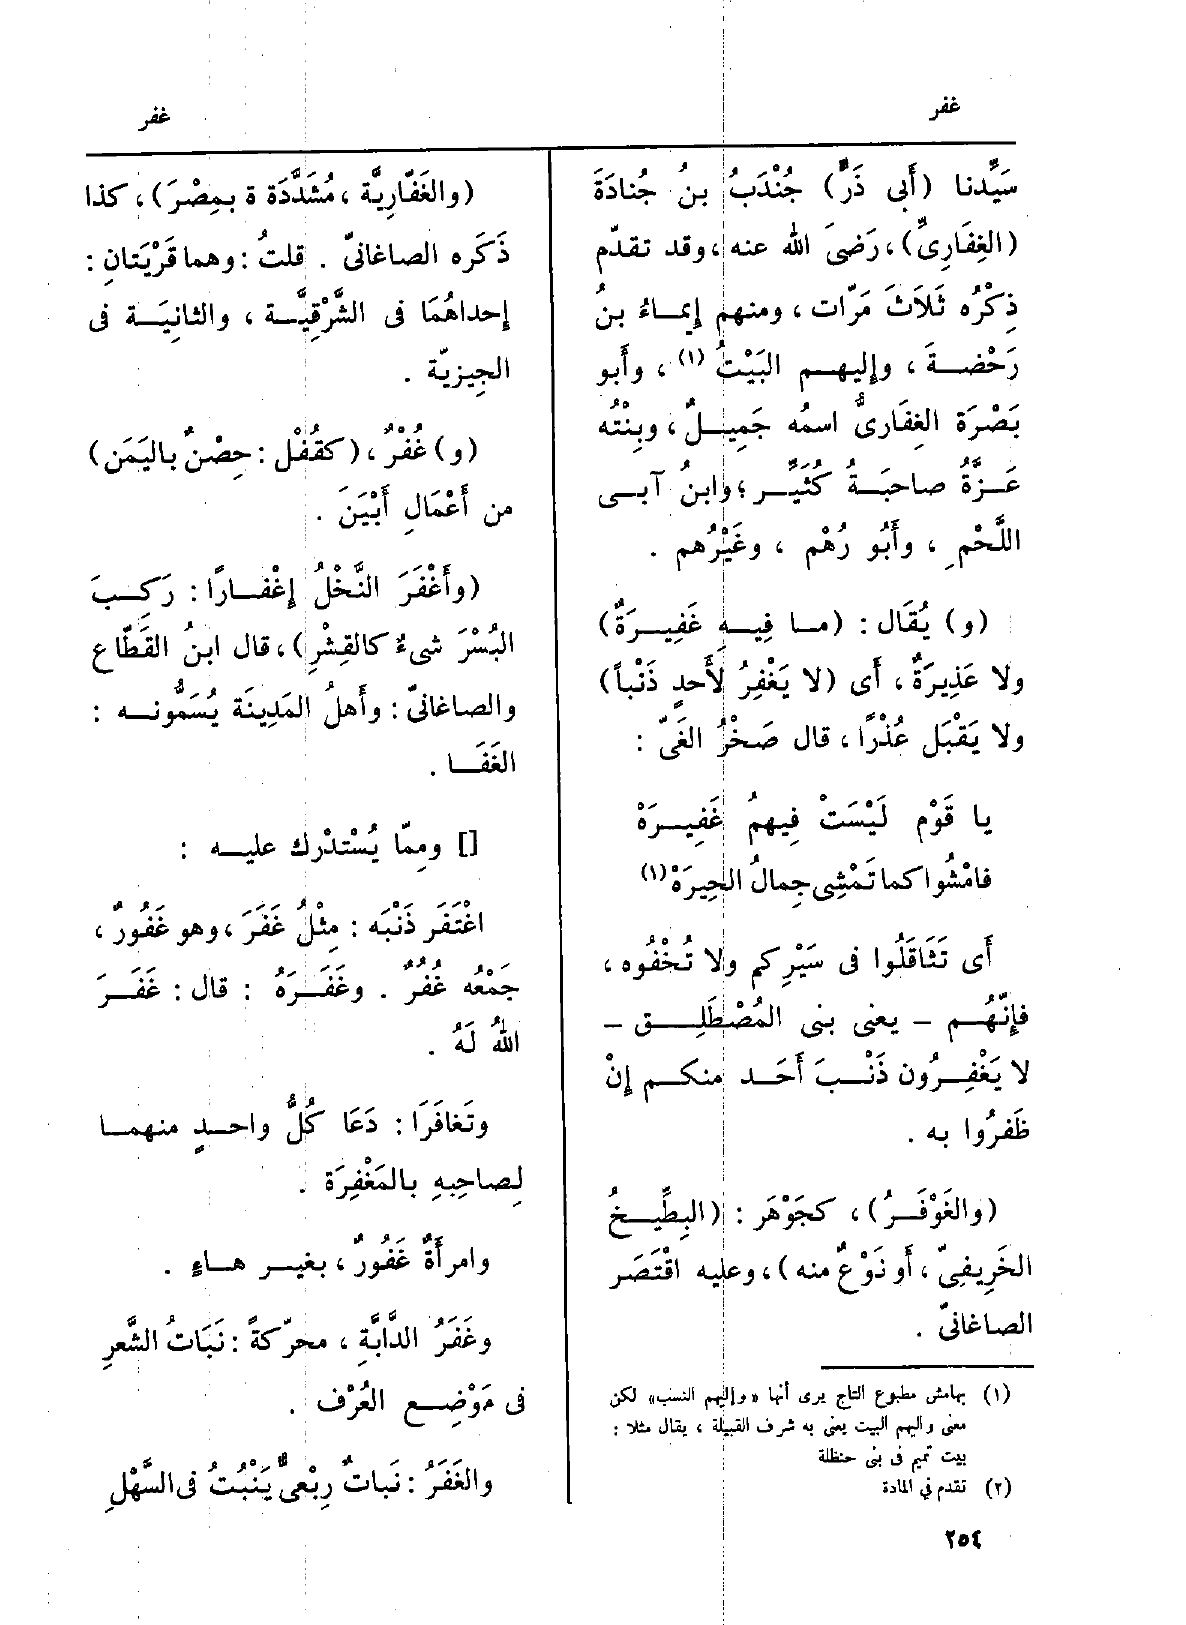 غفر
غفر
سَيِّدنا (أَبى ذَرٍّ) جُنْدَبُ بنُ جُنادَةَ
(الغِفَارِىِّ)، رَضىَ الله عنه، وقد تقدّم
ذِكْرُه ثَلَاثَ مَرّات، ومنهم إِيمـاءُ بنُ
رَحْضـةَ، وإِليهـم البَيْتُ (١)، وأَبو
بَصْرَة الغِفَارىُّ اسمُه جَمِيـلٌ، وبِنْتُه
عَـزَّةُ صاحبَـةُ كُثَيِّـر؛ وابنُ آبـى
اللَّحْمِ، وأَبُو رُهْم، وغَيْرُهم.
(و) يُقَال: (مـا فِيـهِ غَفِيـرَةٌ)
ولا عَذِيرَةٌ، أَى (لا يَغْفِرُ لأَحدٍ ذَنْباً)
ولا يَقْبَل عُذْرًا، قال صَخْرُ الغَىّ:
يا قَوْم لَيْسَتْ فِيهمُ غَفِيـرَهْ
فامْشُوا كما تَمْشِى جِمالُ الحِيرَهْ (١)
أَى تَثَاقَلُوا فى سَيْرِكم ولا تُخْفُوه،
فإِنّهُـم - يعنى بنى المُصْطَلِـق -
لا يَغْفِـرُون ذَنْـبَ أَحَـد منكـم إِنْ
ظَفرُوا به.
(والغَوْفَـرُ)، كجَوْهَر: (البِطِّيـخُ
الخَرِيفىّ، أَو نَوْعٌ منه)، وعليه اقْتَصَر
الصاغانىّ.
(١) بهامش مطبوع التاج يرى أنها «وإليهم النسب» لكن
معنى واليهم البيت يعنى به شرف القبيلة، يقال مثلا:
بيت تميم فى بنى حنظلة
(٢) تقدم في المادة
(والغَفّارِيَّة، مُشَدَّدَة ة بمِصْرَ)، كذا
ذَكَره الصاغانىّ. قلتُ: وهما قَرْيَتانِ:
إِحداهُمَا فى الشَّرْقِيَّـة، والثانِيَـة فى
الجِيزيّة.
(و) غُفْرٌ، (كقُفْل: حِصْنٌ باليَمَن)
من أَعْمَالِ أَبْيَنَ.
(وأَغْفَرَ النَّخْلُ إِغْفـارًا: رَكِـبَ
البُسْرَ شىءٌ كالقِشْرِ)، قال ابنُ القَطّاع
والصاغانىّ: وأَهلُ المَدِينَة يُسَمُّونـه:
الغَفَـا.
[] ومِمّا يُسْتَدْرك عليـه:
اغْتَفَر ذَنْبَه: مِثْلُ غَفَرَ، وهو غَفُورٌ،
جَمْعُه غُفُرٌ. وغَفَـرَهُ: قال: غَفَـرَ
اللهُ لَهُ.
وتَغافَرَا: دَعَا كُلُّ واحـدٍ منهمـا
لِصاحِبهِ بالمَغْفِرَة.
وامرأَةٌ غَفُورٌ، بغيـر هـاءٍ.
وغَفَرُ الدّابَّةِ، محرّكةً: نَبَاتُ الشَّعرِ
فى مَوْضِـعِ العُرْف.
والغَفَرُ: نَباتٌ رِبْعىٌّ يَنْبُتُ فى السَّهْلِ
٢٥٤